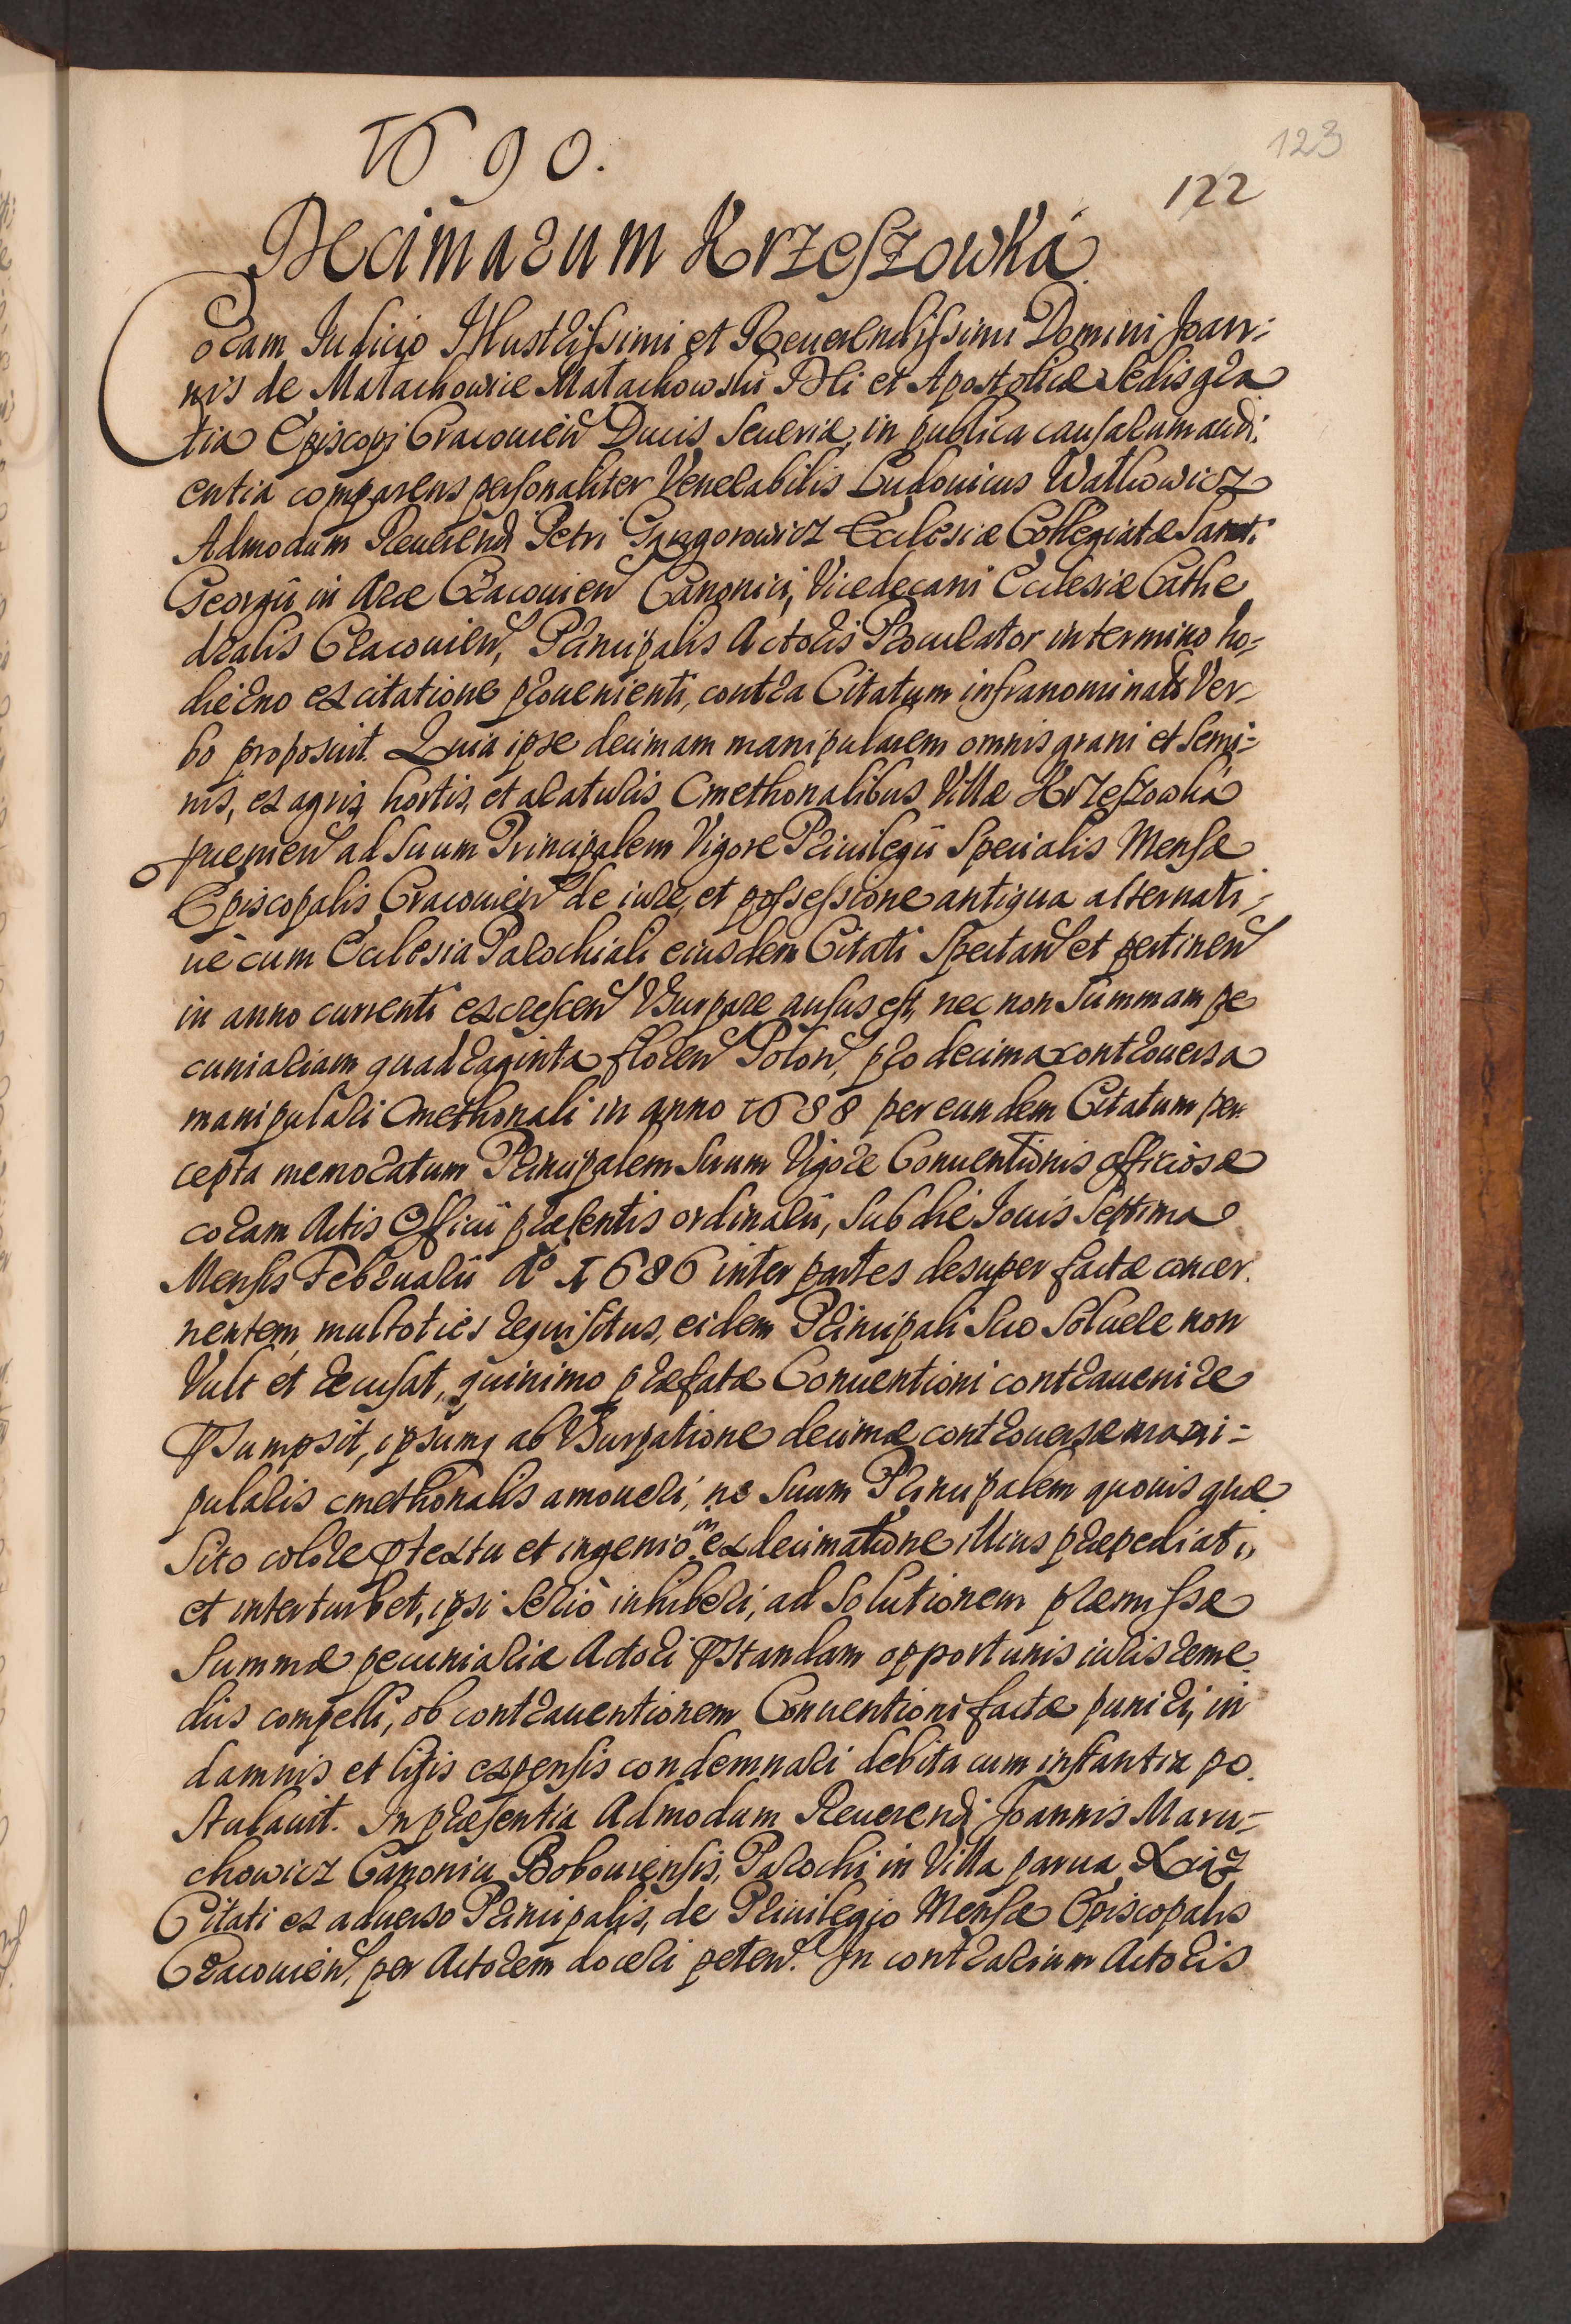 1690.
123
122
Decimarum Krzeszowka
Coram Iudicio Illustrissimi et Reuerendissimi Domini Joan-
nis de Małachowice Małachowski Dei et Apostolicæ Sedis gra
tia Episcopi Cracouien Ducis Seueriæ, in publica causarum audi:
entia comparens personaliter Venerabilis Ludouicus Watkowicz
Admodum Reuerendi Petri Grzegorowicz Ecclesiæ Collegiatæ Sancti
Georgii in Arce Cracouien Canonici, Vicedecani Ecclesiæ Cathe
dralis Cracouien, Principalis Actoris Procurator in termino ho=
dierno ex citatione prouenienti, contra Citatum infranominatu Ver-
bo proposuit. Quia ipse decimam manipularem omnis grani et semi=
nis, ex agris hortis, et araturis Cmethonalibus Villæ Krzeszowka
puenien ad suum Principalem Vigore Priuilegii Specialis Mensæ
Episcopalis Cracouien de iure, et possessione antiqua alternati=
uè cum Ecclesia Parochiali eiusdem Citati Spectan et pertinen
in anno currenti excrescen Vsurpare ausus est, nec non Summam pe
cuniariam quadraginta floren Polon, pro decima controuersa
manipulari Cmethonali in anno 1688 per eundem Citatum per
cepta memoratum Principalem Suum Vigore Conuentionis officiosæ
coram Actis Officii præsentis ordinarii, Sub die Iouis Septima
Mensis Februarii Aº 1686 inter partes desuper factæ concer.
nentem, multoties requisitus, eidem Principali Suo Soluere non
Vult et recusat, quinimo præfatæ Conuentioni contrauenire
p̄sumpsit, ipsumq ab Vsurpatione decimæ controuersæ mani=
pularis cmethonalis amoueri, ne Suum Principalem quouis quæ
Sito colore p̄textu et ingenio in ex decimatione illius præpediat,
et interturbet, ipsi seriò inhiberi, ad Solutionem præmissæ
Summæ pecuniariæ Actori p̄standam opportunis iuris reme
diis compelli, ob contrauentionem Conuentioni factæ puniri, in
damnis et litis expensis condemnari debita cum instantia po
stulauit. In præsentia Admodum Reuerendi Joannis Maru-
chowicz Canonici Bobouiensis, Parochi in Villa parua Xciz
Citati ex aduerso Principalis, de Priuilegio Mensæ Episcopalis
Cracouien, per Actorem doceri peten. In contrarium Actoris